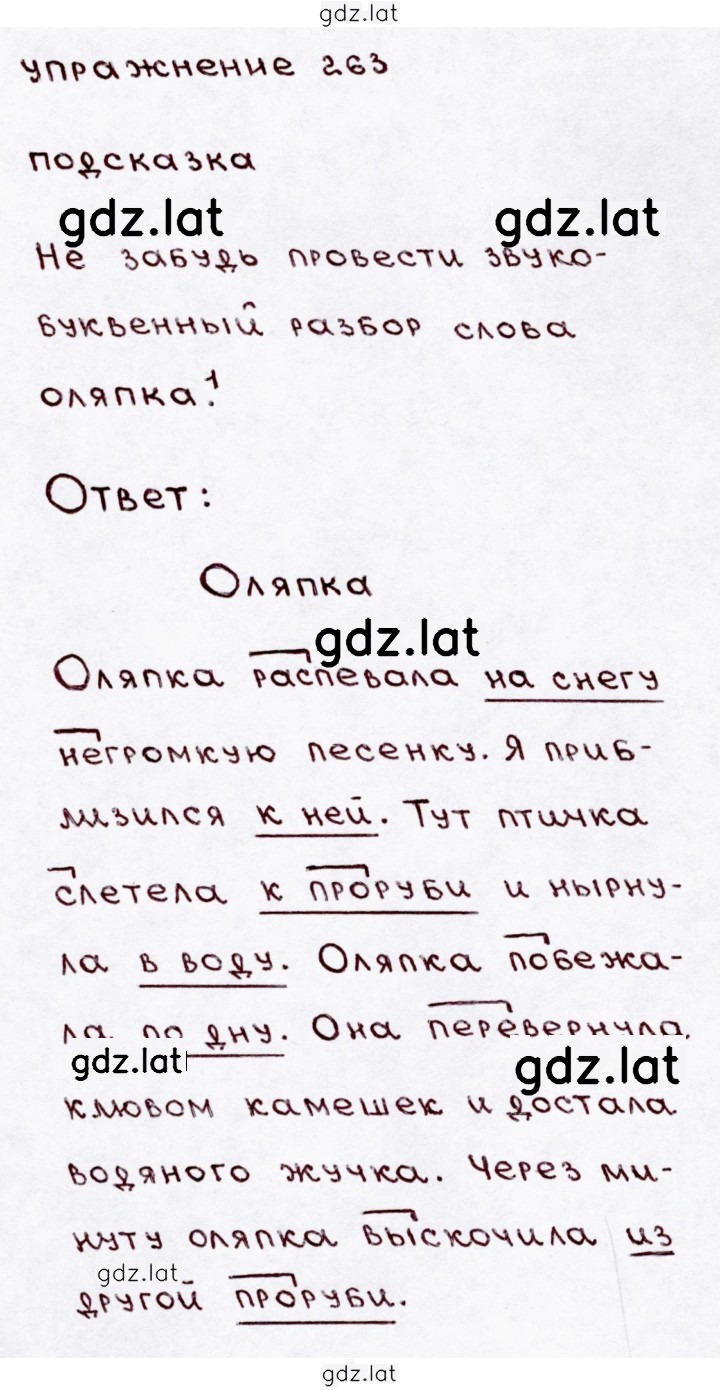 gdz.lat
упражнение 263
подсказка
gdz.lat gdz.lat
Не забудь провести звуко-
буквенный разбор слова
оляпка¹!
Ответ:
Оляпка
gdz.lat
Оляпка распевала на снегу
негромкую песенку. Я приб-
лизился к ней. Тут птичка
слетела к проруби и нырну-
ла в воду. Оляпка побежа-
ла по дну. Она перевернула
gdz.lat gdz.lat
клювом камешек и достала
водяного жучка. Через ми-
нуту оляпка выскочила из
gdz.lat
другой проруби.
gdz.lat